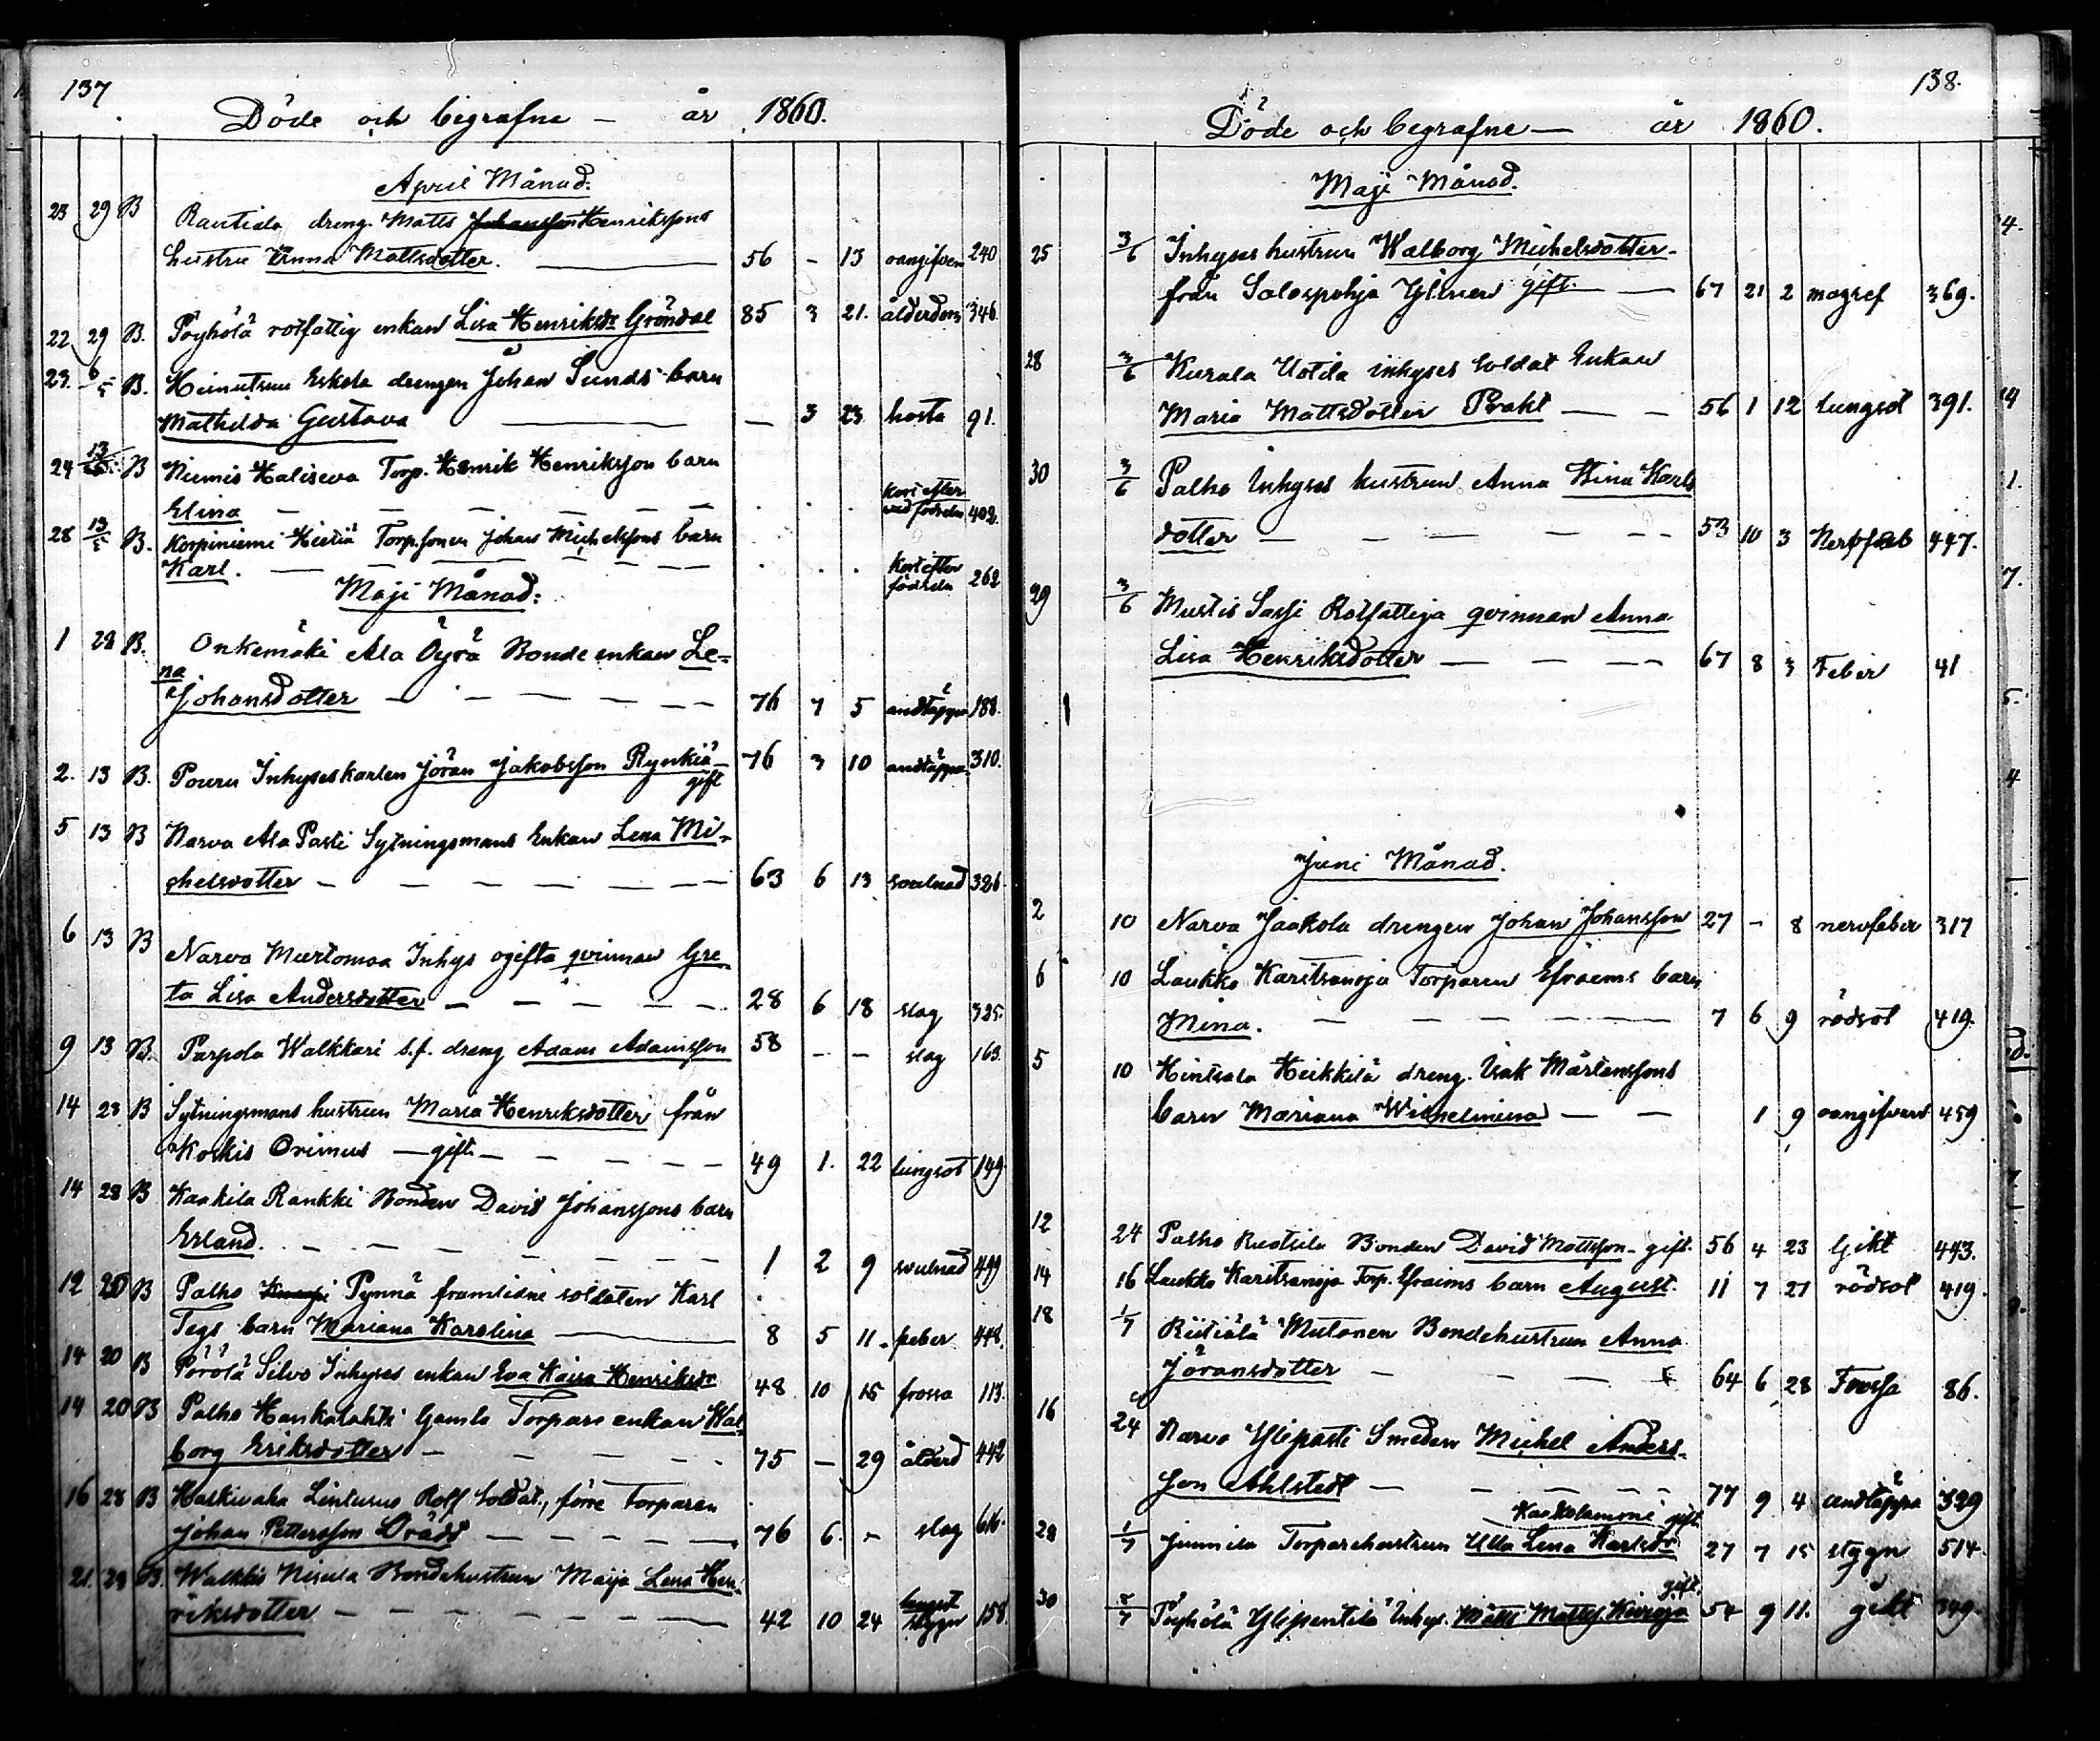 137
Döde och begrafne – år 1860.
April Månad:
23 29 B Rautiala dreng. Matts Johansson Henrikssons
hustru Anna Mattsdotter. 56 – 13 oangifven 240
22 29 B. Pöyhölä rotfattig enkan Lisa Henriksdr Gröndal 85 3 21. ålderdom 346.
23. 6/5 B. Heinutsuu Eskola drengen Johan Sunds barn
Mathilda Gustava — 3 23 hosta 91.
24 13/5 B Niemis Haliseva Torp. Henrik Henriksson barn
Elina – – – – – – kort efter
nödfödseln 402.
28 13/5 B. Korpiniemi Hietiä Torp.sonen Johan Michelssons barn
Karl. – – – – – kort efter
födseln 262
Maji Månad:
1 28 B. Onkemäki Ala Öyrä Bonde enkan Le-
na
Johansdotter – – – – – 76 7 5 andtäppa 188.
2. 13 B. Pouru Inhyseskarlen Jöran Jakobsson Rynkiä – 76 3 10 andtäppa 310.
gift
5 13 B Narva Ala Pasti Sytningsmans Enkan Lena Mi-
chelsdotter – – – – – 63 6 13 svulnad 326.
6 13 B Narva Murtomaa Inhys ogifta qvinnan Gre-
ta Lisa Andersdotter – – – – 28 6 18 slag 325.
9 13 B. Parpola Walkkari s.f. dreng Adam Adamsson 58 – – slag 163.
14 28 B Sytningsmans hustrun Maria Henriksdotter från
Koskis Orimus – gift – – – – 49 1. 22 lungsot 149
14 28 B Kaakila Rankki Bonden David Johanssons barn
Erland. – – – – – 1 2 9 svulnad 499
12 20 B Palho Pynnä framlidne soldaten Karl
Tegs barn Mariana Karolina — 8 5 11. feber 448.
14 20 B Pörölä Silvo Inhyses enkan Eva Kaisa Henriksdr 48 10 15 frossa 113.
14 20 B Palho Haukalahti Gamla Torpare enkan Wal-
borg Eriksdotter – – – – 75 – 29 ålderd 442
16 28 B Haikivaha Linturus Rolf Soldat., förre Torparen
Johan Pettersson Drådt – – – 76 6. – slag 616.
21. 28 B. Walkkis Nisula Bondehustrun Maija Lena Hen-
riksdotter – – – – – 42 10 24 lungsot
stygn 158.
138.
Döde och begrafne — år 1860.
Maji Månad.
25 3/6 Inhyses hustrun Walborg Michelsdotter –
från Salospohja Ylinen gift. — 67 21 2 magref 369.
28 3/6 Kurala Uotila inhyses Soldat Enkan
Maria Mattsdotter Prakt — – 56 1 12 lungsot 391.
30 3/6 Palho Inhyses hustrun Anna Stina Karls
dotter – – – – – 53 10 3 Nervfeb 447.
29 3/6 Mustis Sassi Rotfattiga qvinnan Anna
Lisa Henriksdotter — – – 67 8 3 Feber 41
Juni Månad.
2 10 Narva Jaakola drengen Johan Johansson 27 – 8 nervfeber 317
6 10 Laukko Karitsanoja Torparen Efraems barn
Mina. – – – – – 7 6 9 rödsot 419.
5 10 Hintsala Heikkilä dreng. Isak Mårtenssons
barn Mariana Wilhelmina — – 1 9 oangifven 459
12 24 Palho Ruotsila Bonden David Mattsson – gift. 56 4 23 Gikt 443.
14 16 Laukko Karitsanoja Torp. Efraims barn August. 11 7 27 rödsot 419.
18 1/7 Riitiälä Mutonen Bondehustrun Anna
Jöransdotter – – – 64 6 28 Frossa 86.
16 24 Narva Ylipasti Smeden Michel Anders-
son Ahlstedt – – – – – 77 9 4 andtäppa 329
Kaakolamoni gift.
28 1/7 Junnila Torparehustrun Ulla Lena Karlsdr 27 7 15 stygn 514.
gift.
30 8/7 Pöyhölä Ylipentilä Inhys. Matts Matts. Kivioja 54 9 11. gikt 349.